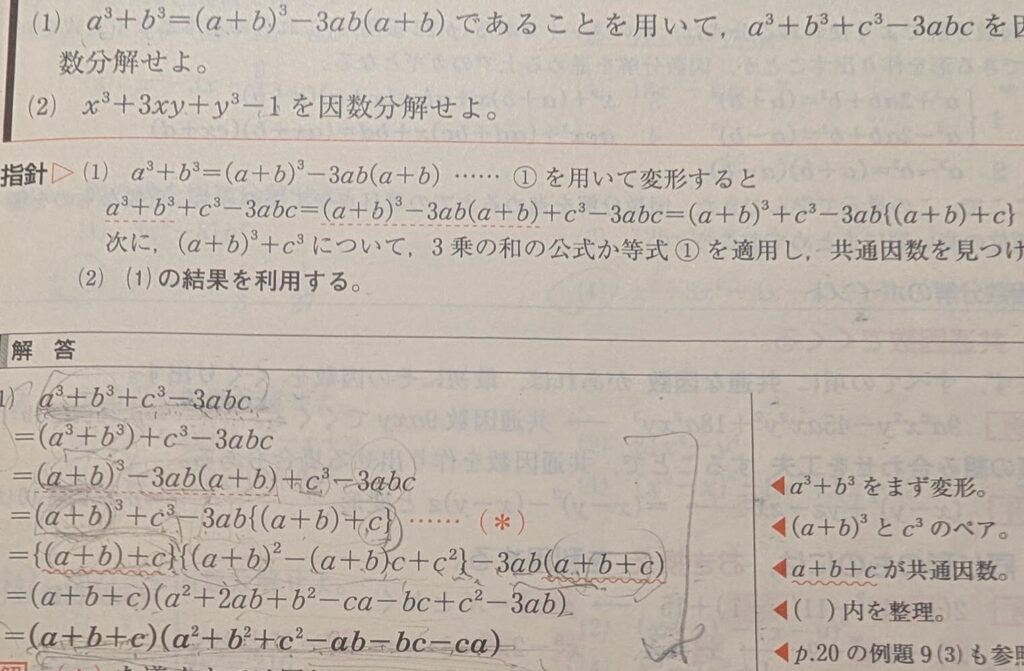 (1) a³+b³=(a+b)³−3ab(a+b) であることを用いて，a³+b³+c³−3abc を因
数分解せよ。
(2) x³+3xy+y³−1 を因数分解せよ。
指針▷ (1) a³+b³=(a+b)³−3ab(a+b) …… ① を用いて変形すると
a³+b³+c³−3abc=(a+b)³−3ab(a+b)+c³−3abc=(a+b)³+c³−3ab{(a+b)+c}
次に，(a+b)³+c³ について，3 乗の和の公式か等式 ① を適用し，共通因数を見つけ
(2) (1) の結果を利用する。
解 答
1) a³+b³+c³−3abc
=(a³+b³)+c³−3abc
=(a+b)³−3ab(a+b)+c³−3abc
=(a+b)³+c³−3ab{(a+b)+c} …… (*)
={(a+b)+c}{(a+b)²−(a+b)c+c²}−3ab(a+b+c)
=(a+b+c)(a²+2ab+b²−ca−bc+c²−3ab)
=(a+b+c)(a²+b²+c²−ab−bc−ca)
◀a³+b³ をまず変形。
◀(a+b)³ と c³ のペア。
◀a+b+c が共通因数。
◀( ) 内を整理。
◀p.20 の例題 9 (3) も参照